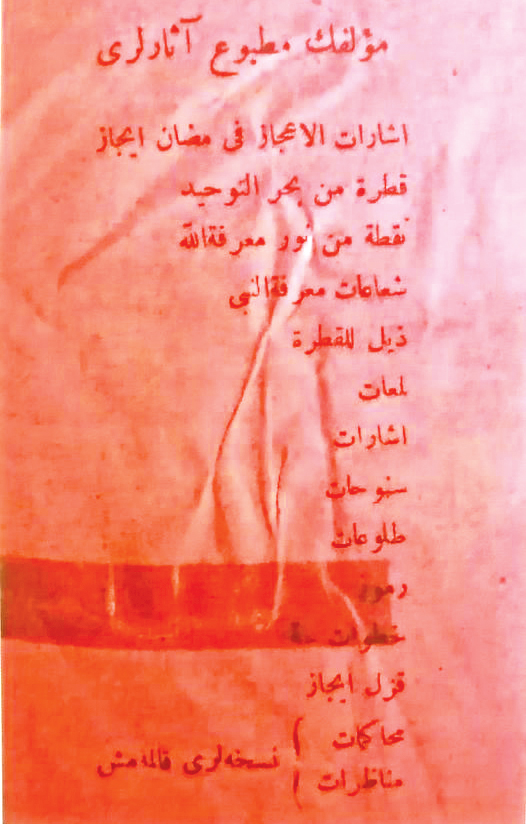 مؤلفك مطبوع آثارلرى
اشارات الاعجاز فى مضان ايجاز
قطرة من بحر التوحيد
نقطة من نور معرفةالله
شعاعات معرفةالنبى
ذيل للقطرة
لمعات
اشارات
سنوحات
طلوعات
رموز
خطوات ستة
قزل ايجاز
محاكمات
مناظرات } نسخه‌لرى قالمه‌مش